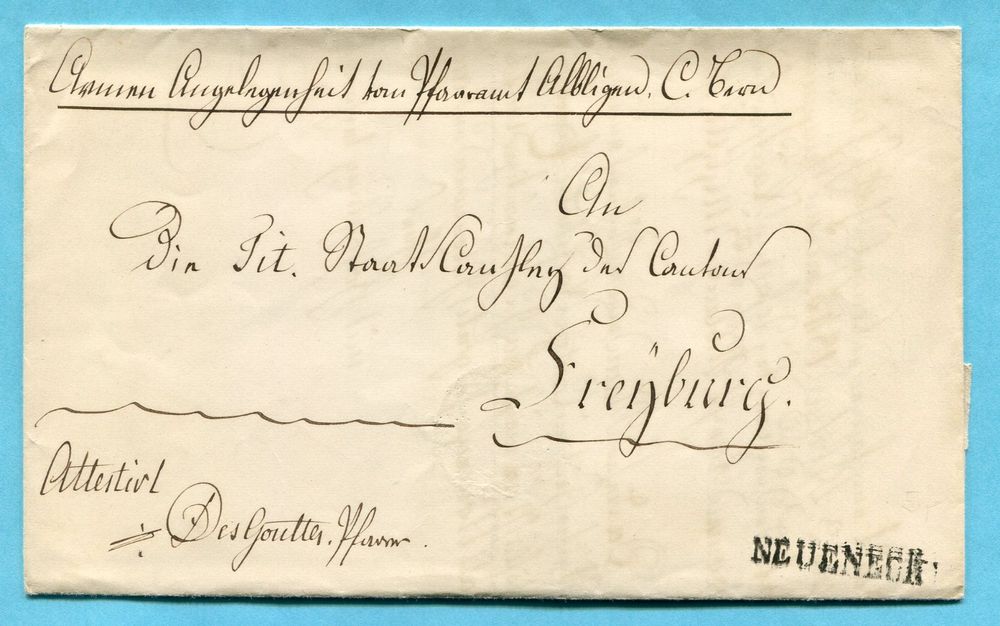 Armen Angelegenheit vom Pfarramt Albligen, C. Bern
An
Die Tit. StaatsCanzley des Cantons
Freÿburg.
Attestirt
DesGouttes, Pfarrer.
NEUENECK